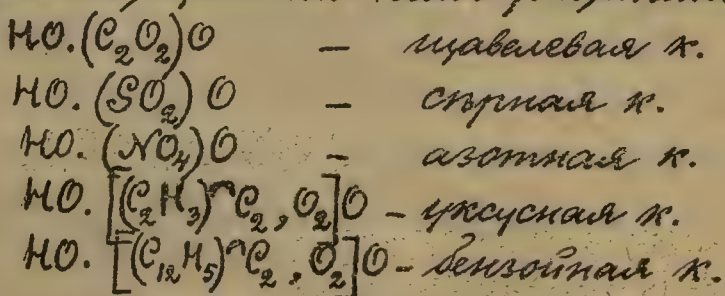 HO.(C₂O₂)O – щавелевая к.
HO.(SO₂)O – сѣрная к.
HO.(NO₄)O – азотная к.
HO.[(C₂H₃)⌒C₂,O₂]O – уксусная к.
HO.[(C₁₂H₅)⌒C₂,O₂]O – бензойная к.